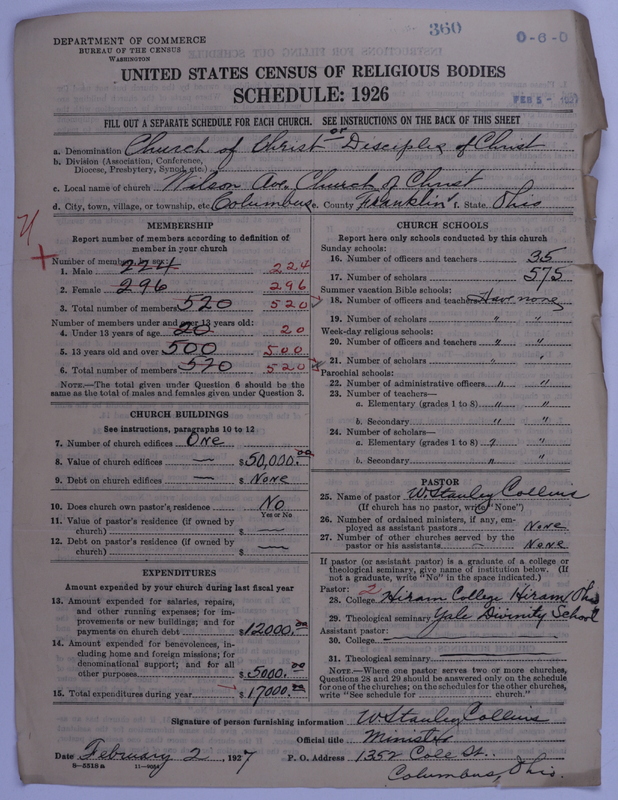 360
0-6-0
DEPARTMENT OF COMMERCE
BUREAU OF THE CENSUS
WASHINGTON
UNITED STATES CENSUS OF RELIGIOUS BODIES
SCHEDULE: 1926
FEB 5 - 1927
FILL OUT A SEPARATE SCHEDULE FOR EACH CHURCH. SEE INSTRUCTIONS ON THE BACK OF THIS SHEET
a. Denomination Church of Christ or Disciples of Christ
b. Division (Association, Conference, Diocese, Presbytery, Synod, etc.)
c. Local name of church Wilson Ave. Church of Christ
d. City, town, village, or township, etc. Columbus e. County Franklin f. State Ohio
MEMBERSHIP
Report number of members according to definition of
member in your church
Number of members by sex:
1. Male 224 224
2. Female 296 296
3. Total number of members 520 520
Number of members under and over 13 years old:
4. Under 13 years of age 20 20
5. 13 years old and over 500 500
6. Total number of members 520 520
NOTE.—The total given under Question 6 should be the
same as the total of males and females given under Question 3.
CHURCH BUILDINGS
See instructions, paragraphs 10 to 12
7. Number of church edifices One
8. Value of church edifices — $50,000.00
9. Debt on church edifices — $ None
10. Does church own pastor's residence No
Yes or No
11. Value of pastor's residence (if owned by
church) $ —
12. Debt on pastor's residence (if owned by
church) $ —
EXPENDITURES
Amount expended by your church during last fiscal year
13. Amount expended for salaries, repairs,
and other running expenses; for im-
provements or new buildings; and for
payments on church debt $12000.00
14. Amount expended for benevolences, in-
cluding home and foreign missions; for
denominational support; and for all
other purposes $5000.00
15. Total expenditures during year $17000.00
CHURCH SCHOOLS
Report here only schools conducted by this church
Sunday schools:
16. Number of officers and teachers 35
17. Number of scholars 575
Summer vacation Bible schools:
18. Number of officers and teachers Have none
19. Number of scholars " "
Week-day religious schools:
20. Number of officers and teachers " "
21. Number of scholars " "
Parochial schools:
22. Number of administrative officers " "
23. Number of teachers—
a. Elementary (grades 1 to 8) " "
b. Secondary " "
24. Number of scholars—
a. Elementary (grades 1 to 8) " "
b. Secondary " "
PASTOR
25. Name of pastor W Stanley Collins
(If church has no pastor, write "None")
26. Number of ordained ministers, if any, em-
ployed as assistant pastors None
27. Number of other churches served by the
pastor or his assistants — None
If pastor (or assistant pastor) is a graduate of a college or
theological seminary, give name of institution below. (If
not a graduate, write "No" in the space indicated.)
Pastor: 2
28. College Hiram College Hiram, Ohio
29. Theological seminary Yale Divinity School
Assistant pastor:
30. College —
31. Theological seminary —
NOTE.—Where one pastor serves two or more churches,
Questions 28 and 29 should be answered only on the schedule
for one of the churches; on the schedules for the other churches,
write "See schedule for church."
Signature of person furnishing information W Stanley Collins
Official title Minister
Date February 2, 1927 P. O. Address 1352 Cole St.
8-5318 a
Columbus, Ohio.